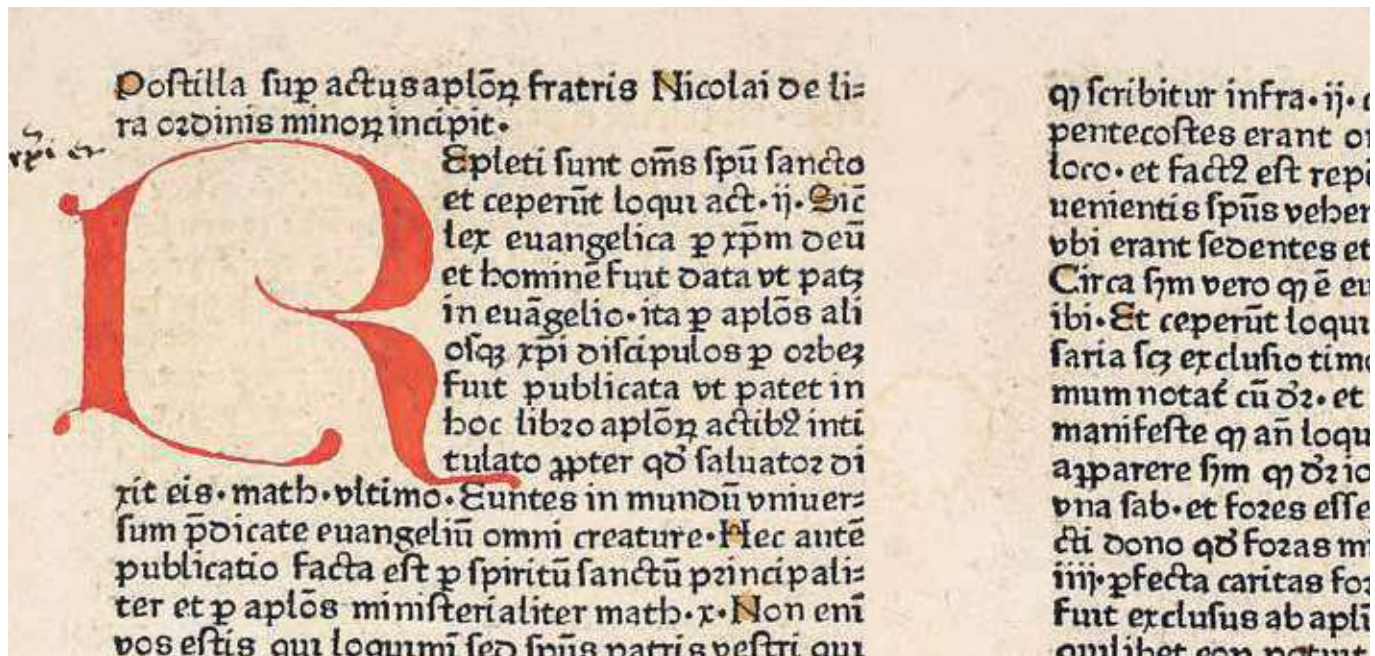 Postilla suꝑ actus aplōꝝ fratris Nicolai de li⸗
ra ordinis minoꝝ incipit·
REpleti sunt om̄s spū sancto
et ceperūt loqui act·ij·Sic̄
lex euangelica ꝑ xp̄m deū
et hominē fuit data vt patꝫ
in euāgelio·ita ꝑ aplōs ali
osqꝫ xp̄i discipulos ꝑ orbeꝫ
fuit publicata vt patet in
hoc libro aplōꝝ actibꝰ inti
tulato ꝓpter qd̄ saluator di
xit eis·math·vltimo·Euntes in mundū vniuer⸗
sum p̄dicate euangeliū omni creature·Hec autē
publicatio facta est ꝑ spiritū sanctū principali⸗
ter et ꝑ aplōs ministerialiter math·x·Non eni̅
vos estis qui loquimi̅ sed spūs patris vestri qui
ꝙ scribitur infra·ij·
pentecostes erant
loco·et factꝰ est
uenientis spūs
vbi erant sedentes et
Circa hm̄ vero ꝙ ē
ibi·Et ceperūt
saria scꝫ exclusio
mum notat᷑ cū dr̄·et
manifeste ꝙ an̄
apparere hm̄ ꝙ dr̄
vna sab·et fores
cti dono qd̄ foras
iiij·ꝑfecta caritas
fuit exclusus ab
quilibet eoꝝ potuit